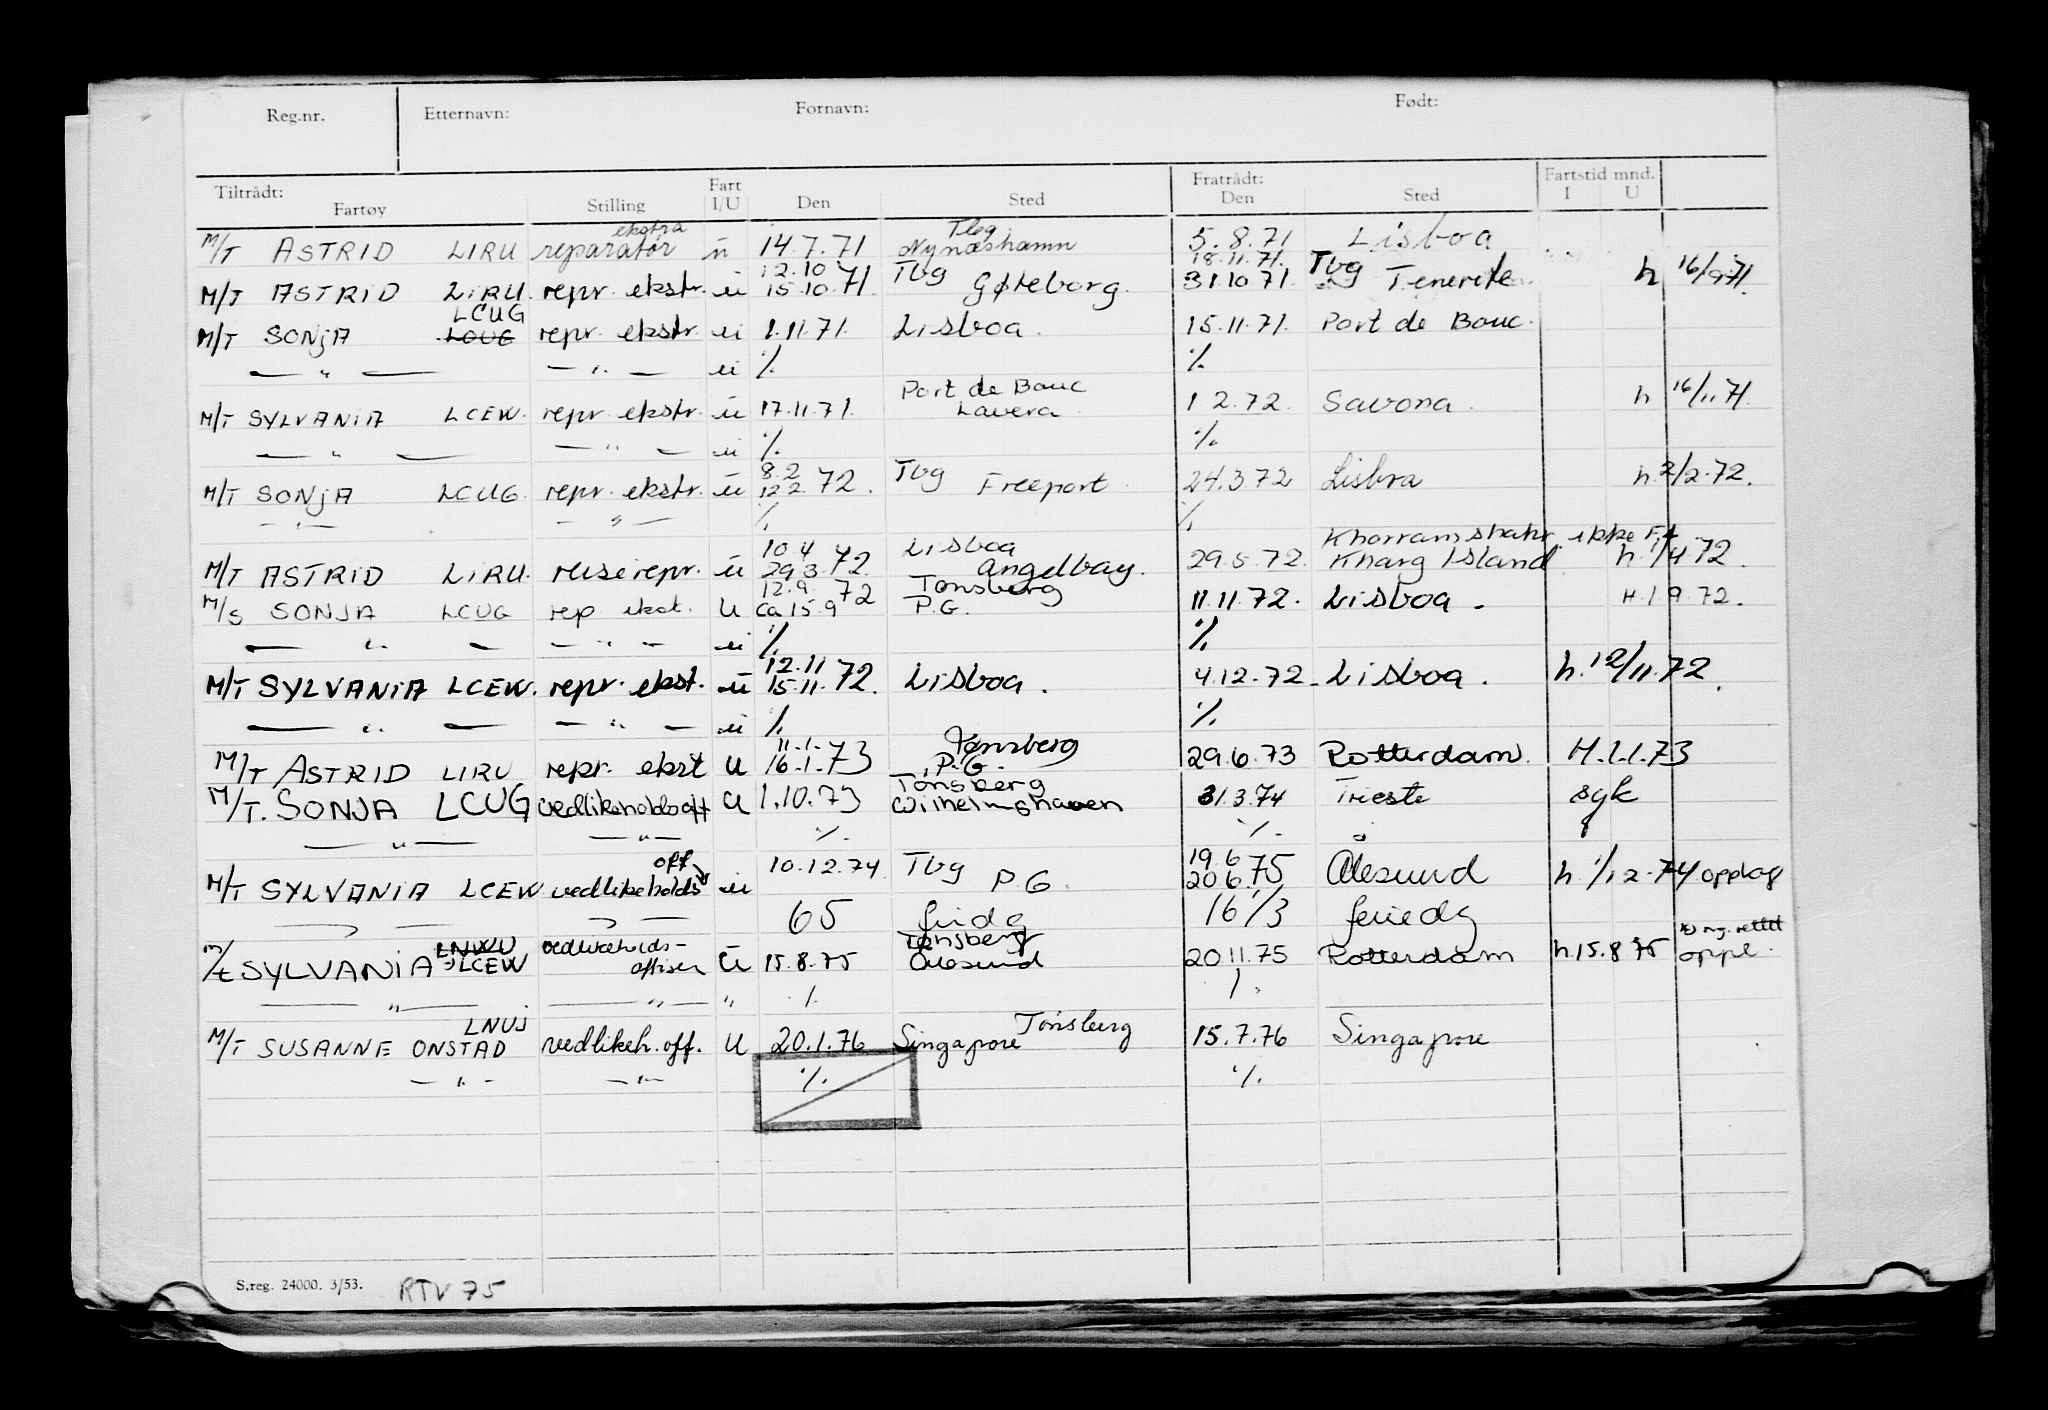 Reg.nr. Etternavn: Fornavn: Født:
Tiltrådt: Fartøy Stilling Fart I/U Den Sted Fratrådt: Den Sted Fartstid mnd. I U
M/T ASTRID LIRU reparatør ekstra u 14.7.71 Tbg Nynæshamn 5.8.71 Lisboa
M/T ASTRID LIRU. repr. ekstr. u 12.10 15.10.71. Tbg Gøteborg. 18.11.71. 31.10.71. Tbg Tenerife h 16/9.71.
M/T SONJA LOUG LCUG repr. ekstr. u 1.11.71. Lisboa. 15.11.71. Port de Bouc.
— " — — " — u ./. ./.
M/T SYLVANIA LCEW. repr. ekstr. u 17.11.71. Port de Bouc Lavera 1 2.72. Savona. h 16/11.71.
— " — — " — u ./. ./.
M/T SONJA LCUG. repr. ekstr. u 8.2 12.2.72. Tbg Freeport. 24.3.72 Lisboa h.2/2.72.
— " — — " — ./. ./.
M/T ASTRID LIRU. reiserepr. u 10.4 29.3.72. Lisboa Angelbay. 29.5.72. Khorramshahr. ikke Kharg Island h.1/4.72
M/S SONJA LCUG rep. ekst. U 12.9. ca 15.9 72 Tønsberg P.G. 11.11.72. Lisboa. H.1.9.72.
— " — — " — u ./. ./.
M/T SYLVANIA LCEW. repr. ekst. u 12.11 15.11.72. Lisboa. 4.12.72. Lisboa. h.12/11.72.
— " — — " — u ./. ./.
M/T ASTRID LIRU repr. ekst U 11.1. 16.1.73 Tønsberg P.G. 29.6.73 Rotterdam. H.1.1.73
M/T. SONJA LCUG vedlikeholdsoff U 1.10.73 Tønsberg Wilhelmshaven 31.3.74 Trieste syk
— " — — " — ./. ./.
M/T SYLVANIA LCEW vedlikeholds off u 10.12.74 Tbg P.G. 19.6 20.6.75 Ålesund h.1/12.74 opplag
— " — — " — 65 16 1/3 feriedg
M/t SYLVANIA LCEW vedlikeholds-offiser U 15.8.75 Tønsberg Ålesund 20.11.75 Rotterdam h.15.8 75 oppl.
— " — — " — " ./. ./.
M/T SUSANNE ONSTAD LNUJ vedlikeh.off. U 20.1.76 Singapore Tønsberg 15.7.76 Singapore
— " — — " — ./. ./.
S.reg. 24000. 3/53. RTV 75